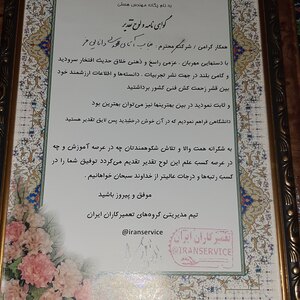 به نام یگانه مهندس هستی
گواهی نامه و لوح تقدیر
همکار گرامی / شرکت محترم: جناب آقای
با دستهایی مهربان . عزمی راسخ و ذهنی خلاق حدیث افتخار سرودید
و گامی بلند در جهت نشر تجربیات ، دانسته‌ها و اطلاعات ارزشمند خود
بین قشر زحمت کش فنی کشور برداشتید
و ثابت نمودید در بین بهترینها نیز می‌توان بهترین بود
دانشگاهی فراهم نمودیم که در آن خوش درخشیدید پس لایق تقدیر هستید
به شکرانه همت والا و تلاش شکوهمندتان چه در عرصه آموزش و چه
در عرصه کسب علم این لوح تقدیر تقدیم می‌گردد توفیق شما را در
کسب رتبه‌ها و درجات عالیتر از خداوند سبحان خواهانیم .
موفق و پیروز باشید
تیم مدیریتی گروه‌های تعمیرکاران ایران
@iranservice
تعمیرکاران ایران
@IRANSERVICE